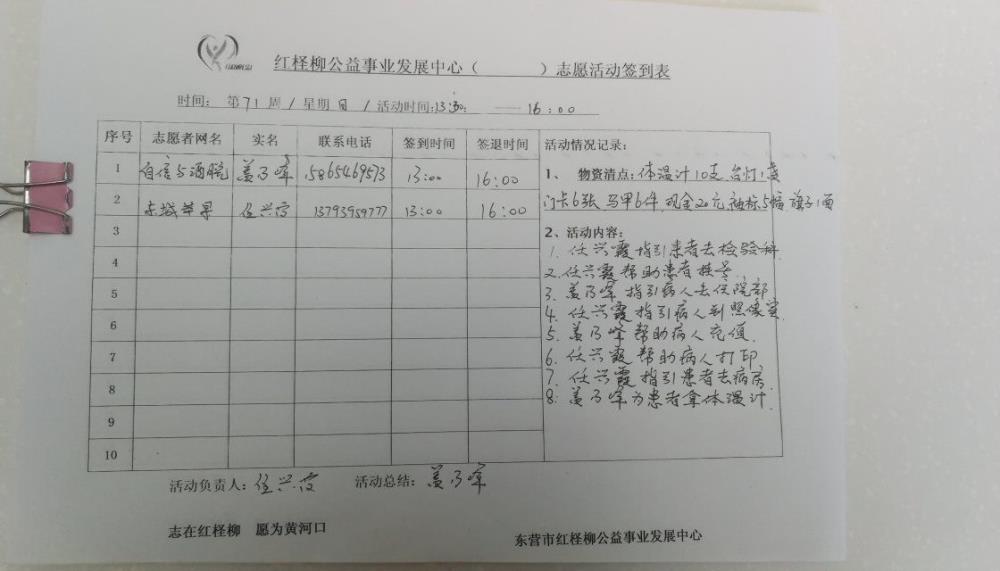 红柽柳公益事业发展中心（ ）志愿活动签到表
时间：第71周/星期日/活动时间:13:30: —— 16:00
序号 志愿者网名 实名 联系电话 签到时间 签退时间 活动情况记录：
1 自信与洒脱 姜乃峰 15865469573 13:00 16:00
2 东城苹果 任兴霞 13793959777 13:00 16:00
3
4
5
6
7
8
9
10
1、 物资清点：体温计10支，台灯1盏
门卡6张，马甲6件，现金20元，袖标5幅，旗子1面
2、活动内容：
1. 任兴霞指引患者去检验科.
2. 任兴霞帮助患者挂号
3. 姜乃峰指引病人去住院部
4. 任兴霞指引病人到照像室.
5. 姜乃峰帮助病人充值.
6. 任兴霞帮助病人打印.
7. 任兴霞指引患者去病房
8: 姜乃峰为患者拿体温计.
活动负责人：任兴霞 活动总结：姜乃峰
志在红柽柳 愿为黄河口
东营市红柽柳公益事业发展中心